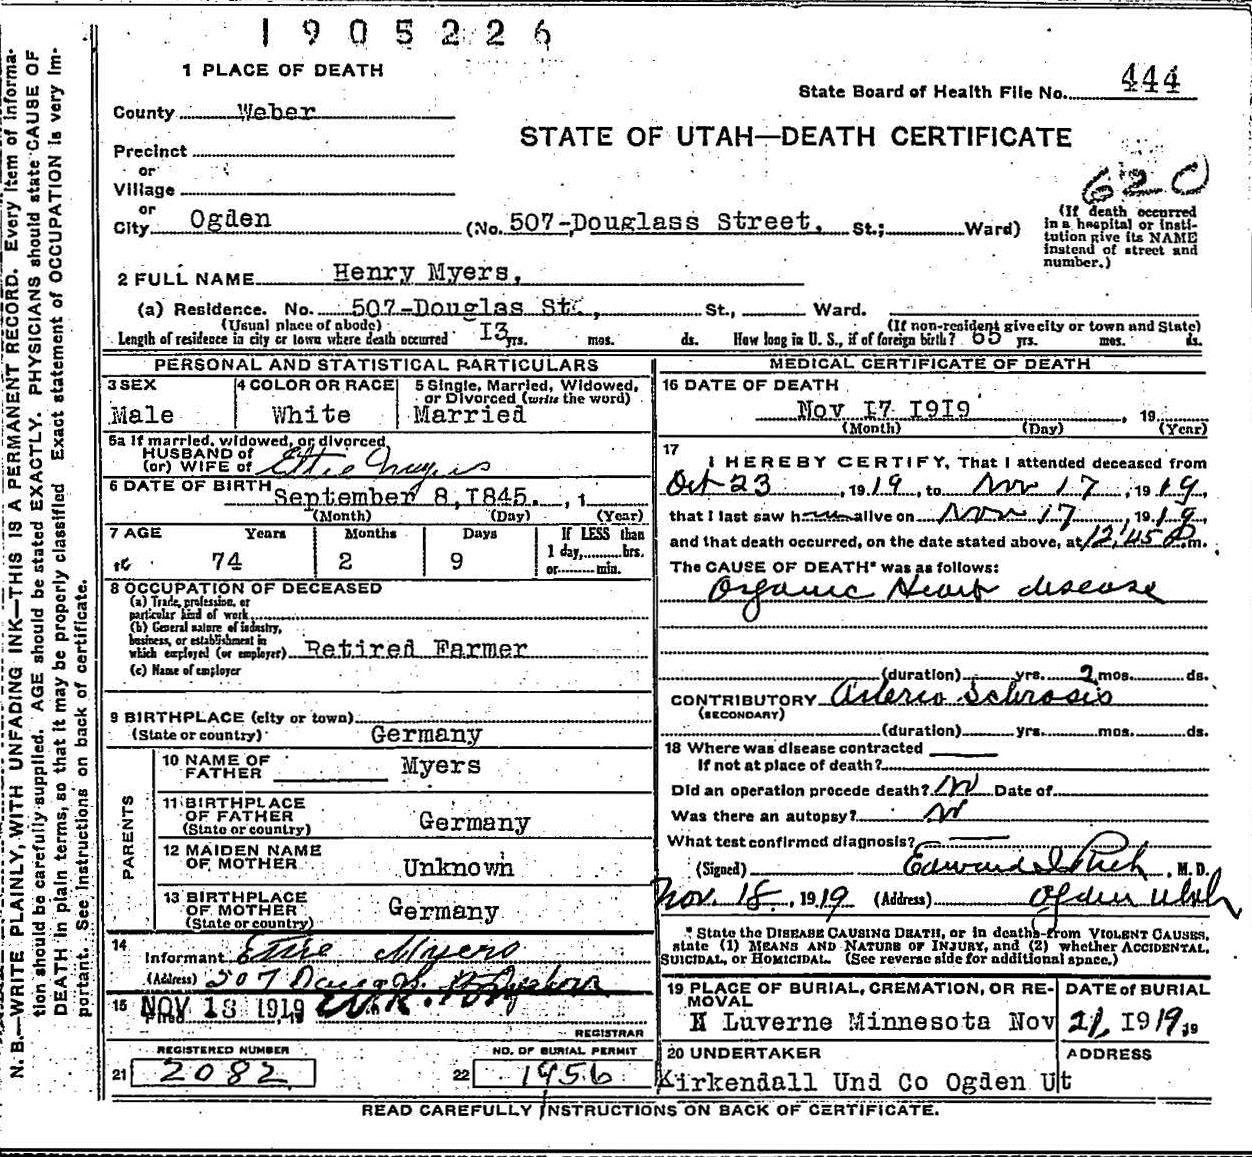 1905226
1 PLACE OF DEATH
State Board of Health File No. 444
County Weber
STATE OF UTAH—DEATH CERTIFICATE
Precinct
or
Village
620
or
City Ogden (No. 507-Douglass Street, St.; Ward)
(If death occurred in a hospital or institution give its NAME instead of street and number.)
2 FULL NAME Henry Myers,
(a) Residence. No. 507-Douglas St., St., Ward.
(Usual place of abode) (If non-resident give city or town and State)
Length of residence in city or town where death occurred I3 yrs. mos. ds. How long in U. S., if of foreign birth? 65 yrs. mos. ds.
PERSONAL AND STATISTICAL PARTICULARS
3 SEX 4 COLOR OR RACE 5 Single, Married, Widowed,
or Divorced (write the word)
Male White Married
5a If married, widowed, or divorced
HUSBAND of
(or) WIFE of Ettie Myers
6 DATE OF BIRTH September 8, I845. , 1
(Month) (Day) (Year)
7 AGE Years Months Days If LESS than
1 day, hrs.
74 2 9 or min.
8 OCCUPATION OF DECEASED
(a) Trade, profession, or
particular kind of work
(b) General nature of industry,
business, or establishment in
which employed (or employer) Retired Farmer
(c) Name of employer
9 BIRTHPLACE (city or town)
(State or country) Germany
PARENTS
10 NAME OF
FATHER Myers
11 BIRTHPLACE
OF FATHER
(State or country) Germany
12 MAIDEN NAME
OF MOTHER Unknown
13 BIRTHPLACE
OF MOTHER
(State or country) Germany
14
Informant Ettie Myers
(Address) 507 Douglas
15 NOV 18 1919
Filed , 19
REGISTRAR
REGISTERED NUMBER NO. OF BURIAL PERMIT
21 2082 22 1956
MEDICAL CERTIFICATE OF DEATH
16 DATE OF DEATH
Nov I7 I9I9 , 19
(Month) (Day) (Year)
17
I HEREBY CERTIFY, That I attended deceased from
Oct 23 , 1919, to Nov 17 , 1919,
that I last saw him alive on Nov 17 , 1919,
and that death occurred, on the date stated above, at 12:45 P.m.
The CAUSE OF DEATH* was as follows:
Organic Heart disease
(duration) yrs. 2 mos. ds.
CONTRIBUTORY Arterio Sclrosis
(SECONDARY)
(duration) yrs. mos. ds.
18 Where was disease contracted
If not at place of death?
Did an operation procede death? No Date of
Was there an autopsy? No
What test confirmed diagnosis?
(Signed) Edward I. Rich, M.D.
Nov. 18, 1919 (Address) Ogden Utah
* State the DISEASE CAUSING DEATH, or in deaths from VIOLENT CAUSES,
state (1) MEANS AND NATURE OF INJURY, and (2) whether ACCIDENTAL,
SUICIDAL, or HOMICIDAL. (See reverse side for additional space.)
19 PLACE OF BURIAL, CREMATION, OR RE- DATE of BURIAL
MOVAL
Luverne Minnesota Nov 21, I919, 19
20 UNDERTAKER ADDRESS
Kirkendall Und Co Ogden Ut
READ CAREFULLY INSTRUCTIONS ON BACK OF CERTIFICATE.
N. B.—WRITE PLAINLY, WITH UNFADING INK—THIS IS A PERMANENT RECORD. Every item of informa-
tion should be carefully supplied. AGE should be stated EXACTLY. PHYSICIANS should state CAUSE OF
DEATH in plain terms, so that it may be properly classified. Exact statement of OCCUPATION is very im-
portant. See instructions on back of certificate.